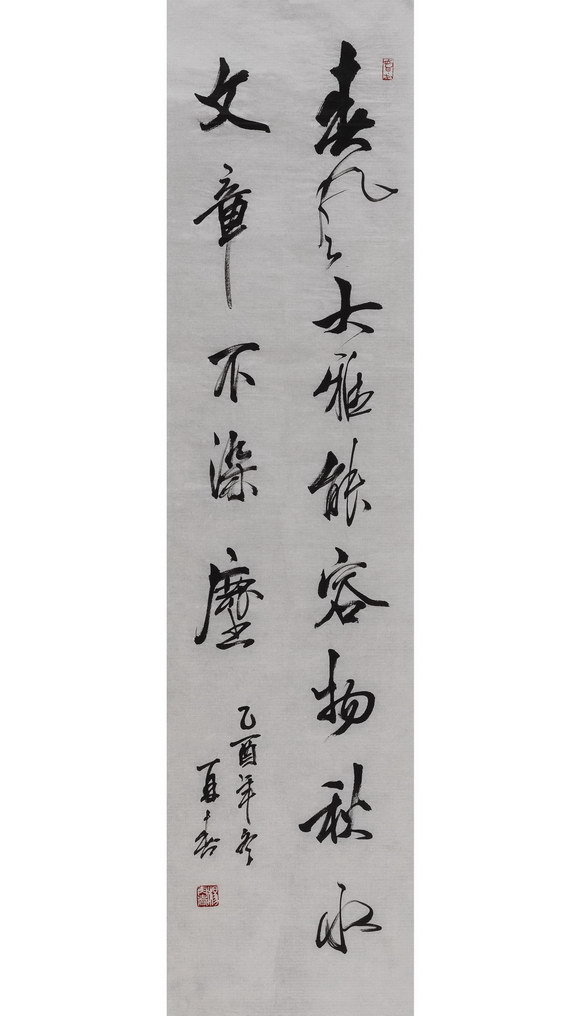 春风大雅能容物秋水
文章不染尘
乙酉年冬